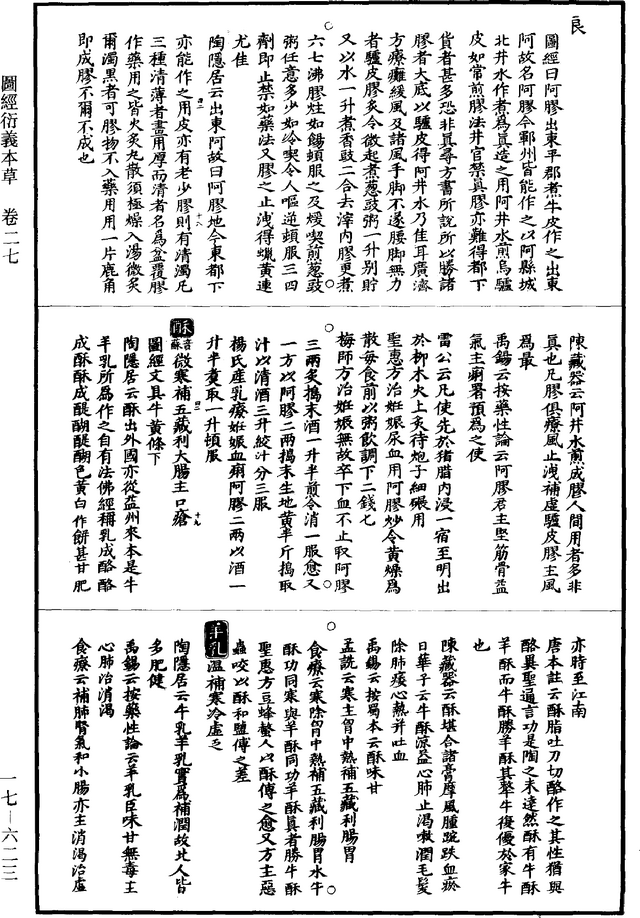 良
圖經曰阿膠出東平郡煮牛皮作之出東
阿故名阿膠今鄆州皆能作之以阿縣城
北井水作者為真造之用阿井水煎烏驢
皮如常煎膠法井官禁真膠亦難得都下
貨者甚多恐非真尋方書所說所以勝諸
膠者大底以驢皮得阿井水乃佳耳廣濟
方療癱緩風及諸風手脚不遂腰脚無力
者驢皮膠炙令微起煮葱豉粥一升别貯
又以水一升煮香豉二合去滓内膠更煮
六七沸膠烊如餳頓服之及煖喫前葱豉
粥任意多少如冷喫令人嘔逆頓服三四
劑即止禁如藥法又膠之止洩得蠟黄連
尤佳
陶隱居云出東阿故曰阿膠地今東都下
亦能作之用皮亦有老少膠則有清濁凡
三種清薄者畫用厚而清者名為盆覆膠
作藥用之皆火炙丸散須極燥入湯微炙
爾濁黑者可膠物不入藥用用一片鹿角
即成膠不爾不成也
陳藏器云阿井水煎成膠人間用者多非
真也凡膠俱療風止洩補虛驢皮膠主風
為最
禹錫云按藥性論云阿膠君主堅筋骨益
氣主痢署預為之使
雷公云凡使先於猪腊内浸一宿至明出
於柳木火上炙待炮子細碾用
聖惠方治妊娠尿血用阿膠炒令黄燥為
散每食前以粥飲調下二錢匕
梅師方治妊娠無故卒下血不止取阿膠
三兩炙搗末酒一升半煎令消一服愈又
一方以阿膠二兩搗末生地黄半斤搗取
汁以清酒三升絞汁分三服
楊氏產乳療妊娠血痢阿膠二兩以酒一
升半煮取一升頓服
酥音蘇微寒補五藏利大腸主口瘡
圖經文具牛黄條下
陶隱居云酥出外國亦從益州來本是牛
羊乳所為作之自有法佛經稱乳成酪酪
成酥酥成醍醐醍醐色黄白作餅甚甘肥
亦時至江南
唐本註云酥脂吐刀切酪作之其性猶與
酪異聖通言功是陶之未達然酥有牛酥
羊酥而牛酥勝羊酥其犛牛復優於家牛
也
陳藏器云酥堪合諸膏摩風腫踠跌血瘀
日華子云牛酥涼益心肺止渴嗽潤毛髮
除肺痿心熱并吐血
禹錫云按蜀本云酥味甘
孟詵云寒主胃中熱補五藏利腸胃
食療云寒除胃中熱補五藏利腸胃水牛
酥功同寒與羊酥同功羊酥真者勝牛酥
聖惠方豆蜂螫人以酥傅之愈又方主惡
蟲咬以酥和鹽傅之差
羊乳温補寒冷虛乏
陶隱居云牛乳羊乳實為補潤故北人皆
多肥健
禹錫云按藥性論云羊乳臣味甘無毒主
心肺治消渴
食療云補肺腎氣和小腸亦主消渴治虛
圖經衍義本草 卷二七
一七—六二三